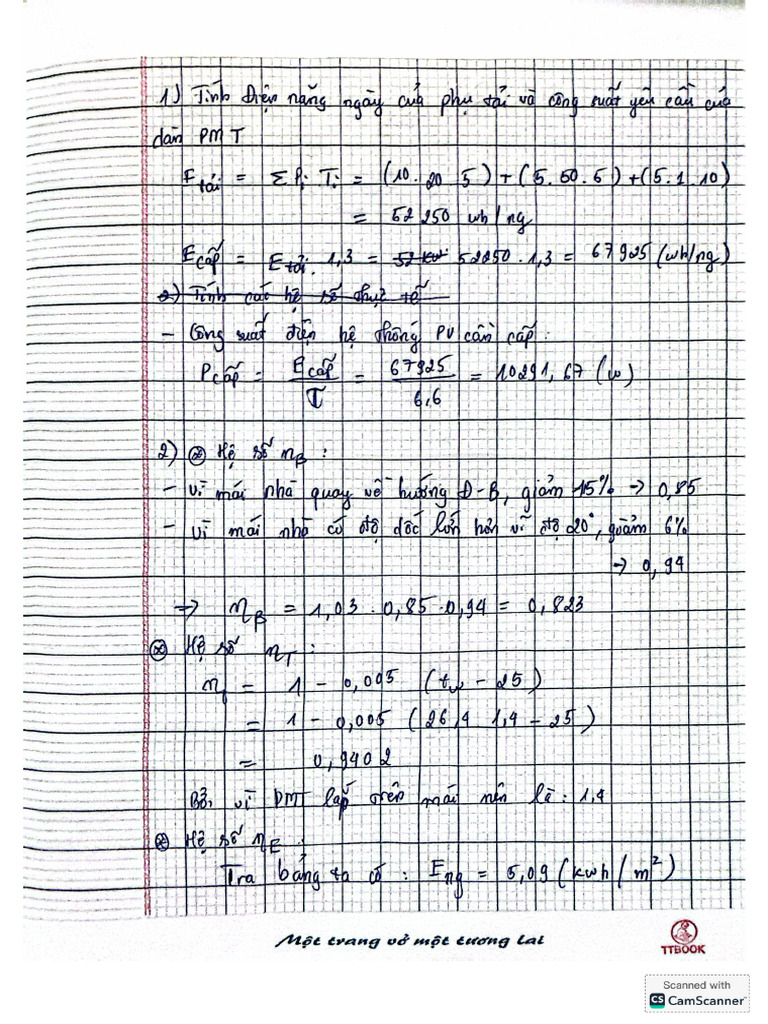 1) Tính điện năng ngày của phụ tải và công suất yêu cầu của
dàn PMT
E tải = ΣPi Ti = (10. 20 5) + (5. 50. 5) + (5. 1. 10)
= 52 250 wh/ng
E cấp = E tải. 1,3 = 52250 . 1,3 = 67925 (wh/ng)
2) Tính các hệ số thực tế
- Công suất điện hệ thống PV cần cấp:
P cấp = E cấp / T = 67925 / 6,6 = 10291,67 (w)
2) ⊗ Hệ số ηβ :
- vì mái nhà quay về hướng Đ-B, giảm 15% → 0,85
- vì mái nhà có độ dốc lớn hơn vĩ độ 20°, giảm 6%
→ 0,94
⇒ ηβ = 1,03 . 0,85 . 0,94 = 0,823
⊗ Hệ số ηT :
η = 1 - 0,005 (tw - 25)
= 1 - 0,005 (26,4 1,4 - 25)
= 0,9402
Bởi vì PMT lắp trên mái nên là : 1,4
⊗ Hệ số ηE :
Tra bảng ta có : Eng = 5,09 (kwh/m²)
Một trang vở một tương lai
TTBOOK
Scanned with
CS CamScanner